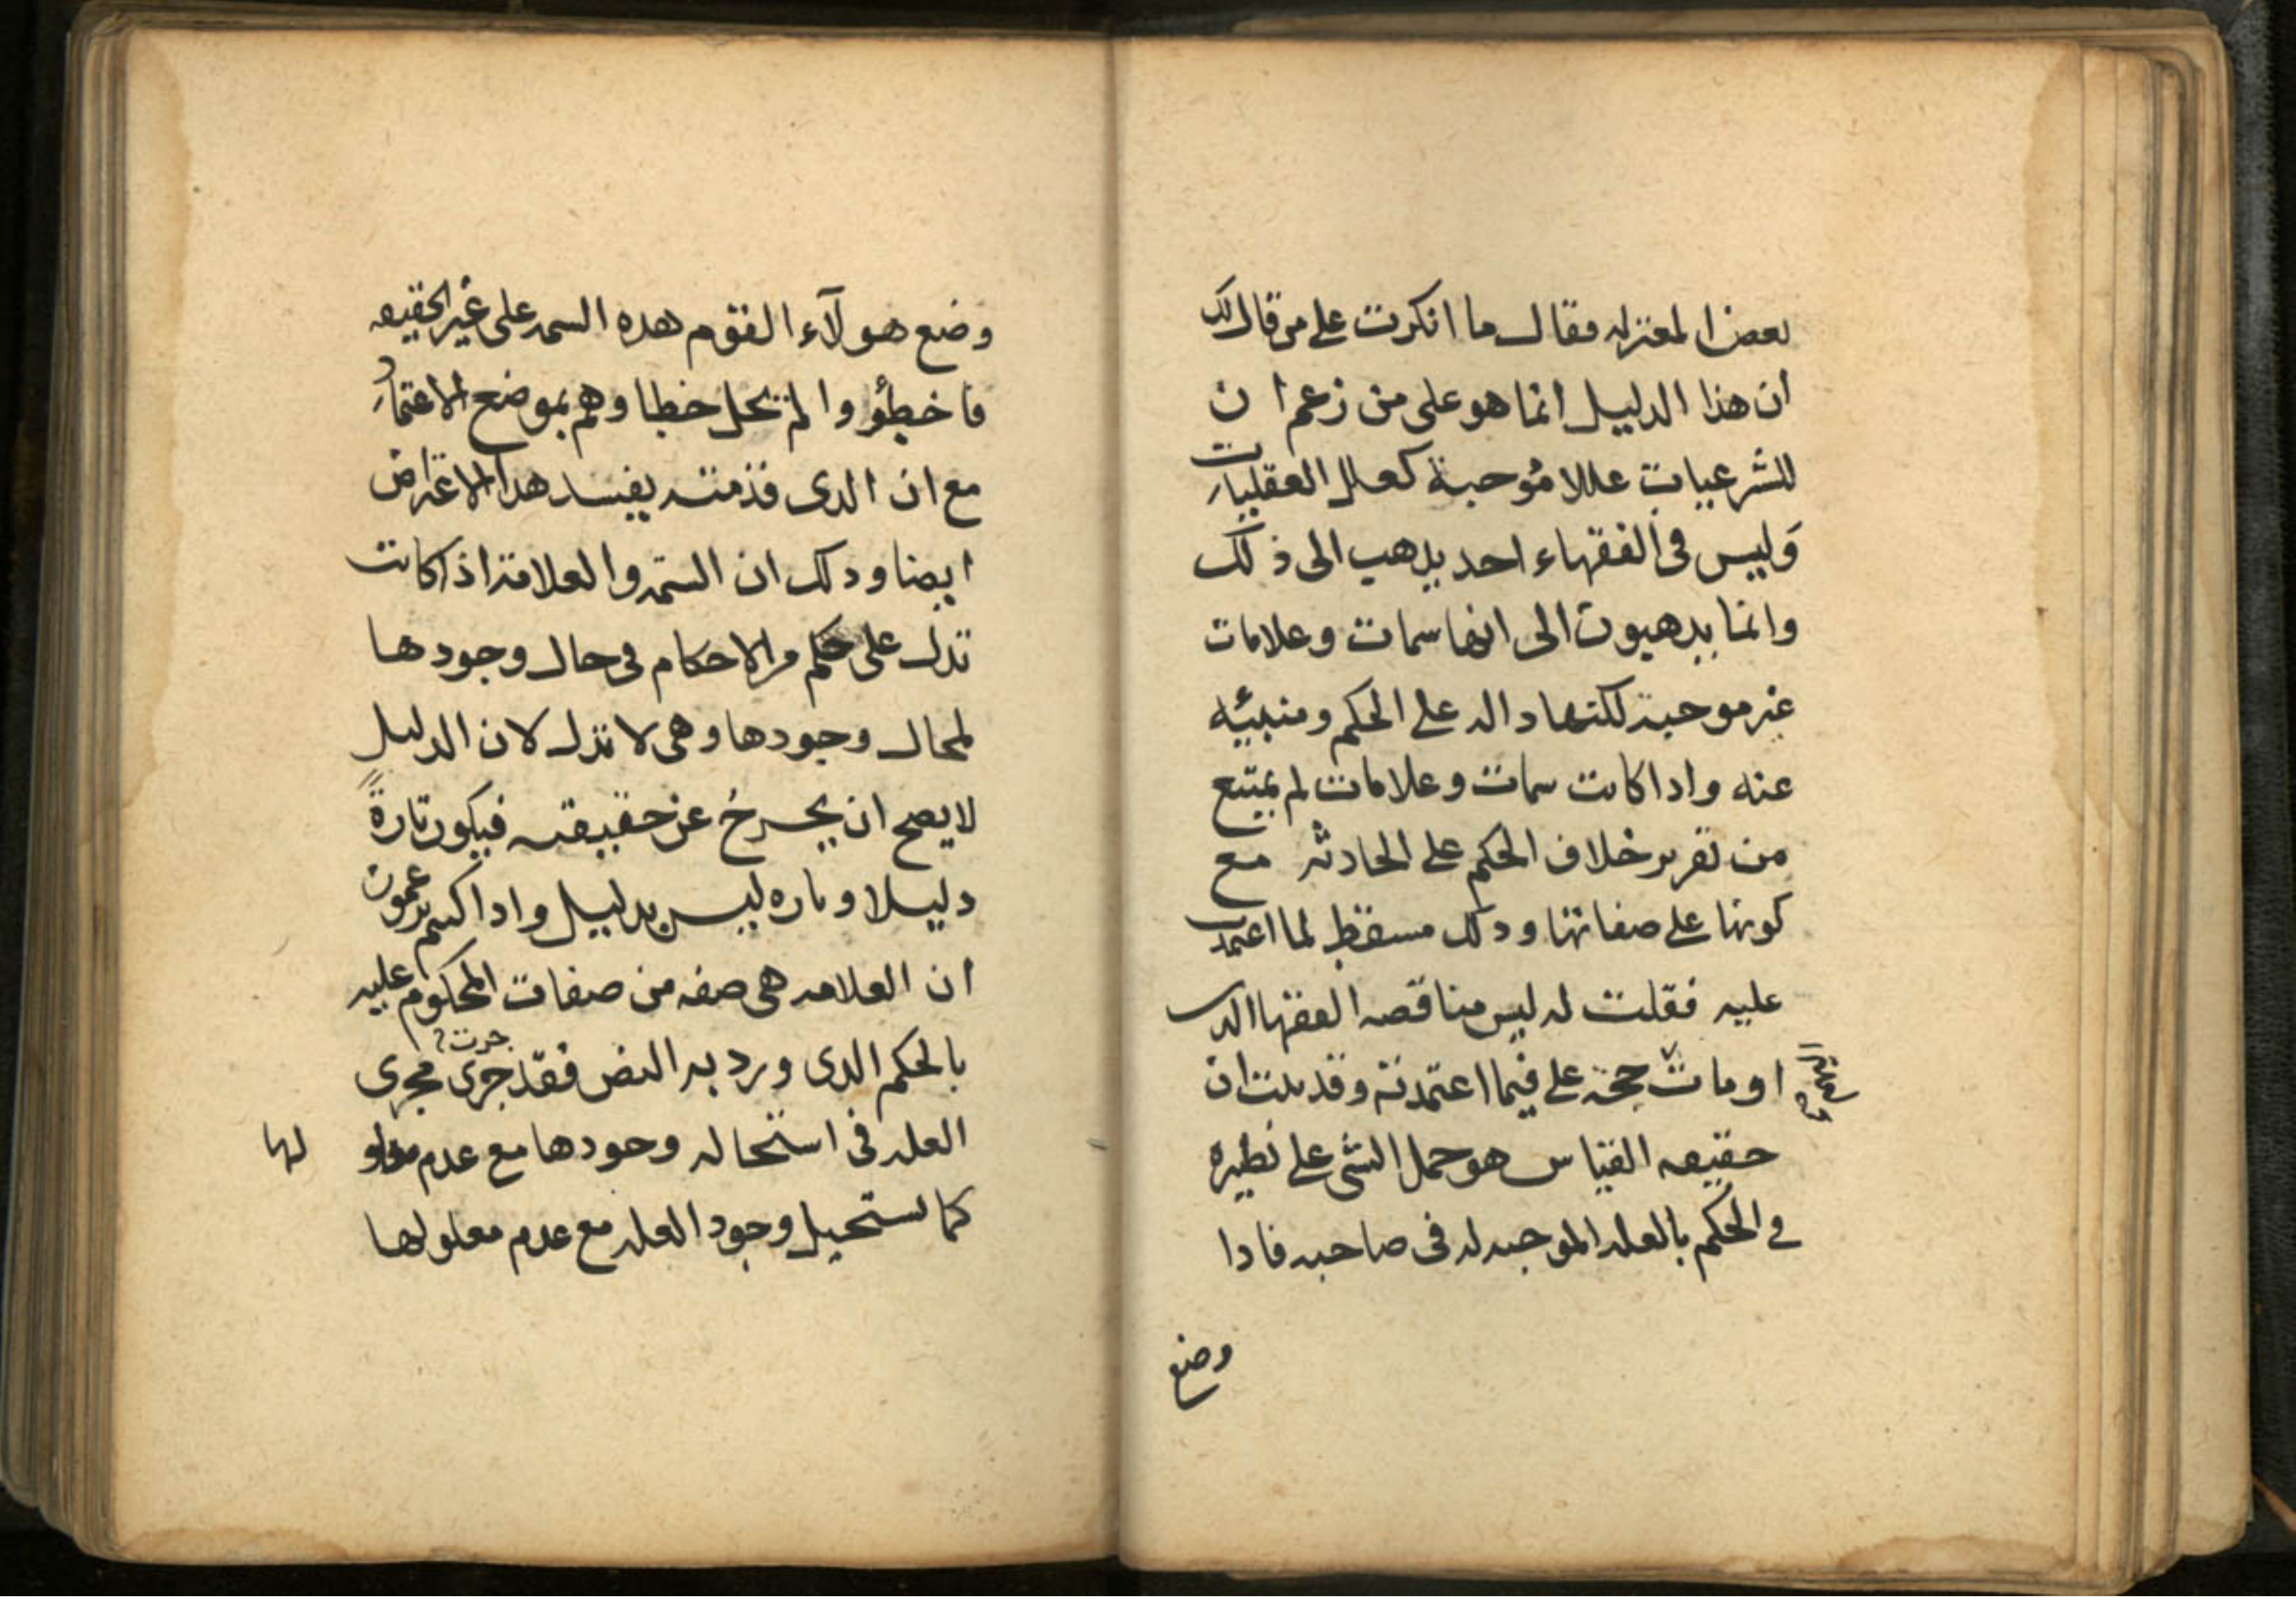 بعض المعتزله فقال ما انكرت على من قال لك
ان هذا الدليل انما هو على من زعم ان
للشرعيات عللا مُوجبة كعلل العقليات
وَليس في الفقهاء احد يذهب الى ذلك
وانما يذهبون الى انها سمات وعلامات
غير موجبة لكنها داله على الحكم ومنبئه
عنه واذا كانت سمات وعلامات لم يمتنع
من تقرير خلاف الحكم على الحادثه مع
كونها على صفاتها وذلك مسقط لما اعتمدت
عليه فقلت له ليس مناقضه الفقها الذي
اومات حجة على فيما اعتمدته وقد بينت ان
حقيقه القياس هو حمل الشى على نظيره
في الحكم بالعله الموجبه له في صاحبه فاذا
وضع
وضع هولآء القوم هذه السمه على غير الحقيقه
فاخطؤوا لم يخل خطا وهم بموضع الاعتماد
مع ان الذى قدمته يفسد هذا الاعتراض
ايضا وذلك ان السمه والعلامة اذا كانت
تدل على حكم من الاحكام فى حال وجودها
لمحال وجودها وهى لا تدل لان الدليل
لا يصح ان يخرج عن حقيقته فيكون تارةً
دليلا وتاره ليس بدليل واذا كنتم تزعمون
ان العلامه هى صفه من صفات المحكوم عليه
بالحكم الذى ورد به النص فقد جرى مجرى
جرت
العله فى استحاله وجودها مع عدم مدلو
لها
كما يستحيل وجود العله مع عدم معلولها